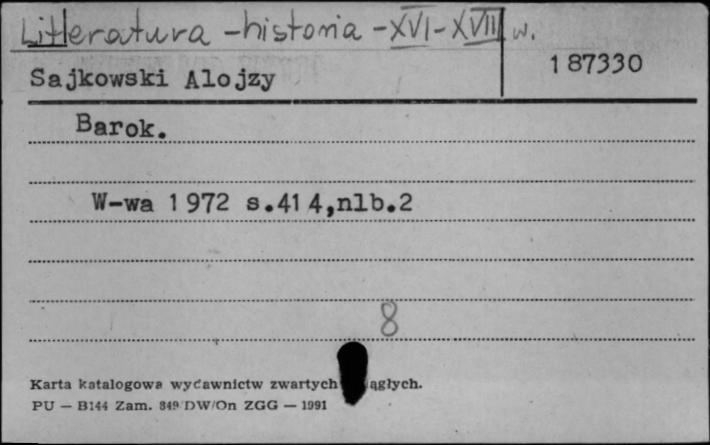 Literatura - historia - XVI - XVII w.
Sajkowski Alojzy
187330
Barok.
W-wa 1972 s.414,nlb.2
8
Karta katalogowa wydawnictw zwartych ciągłych.
PU — B144 Zam. 849 DW/On ZGG — 1991